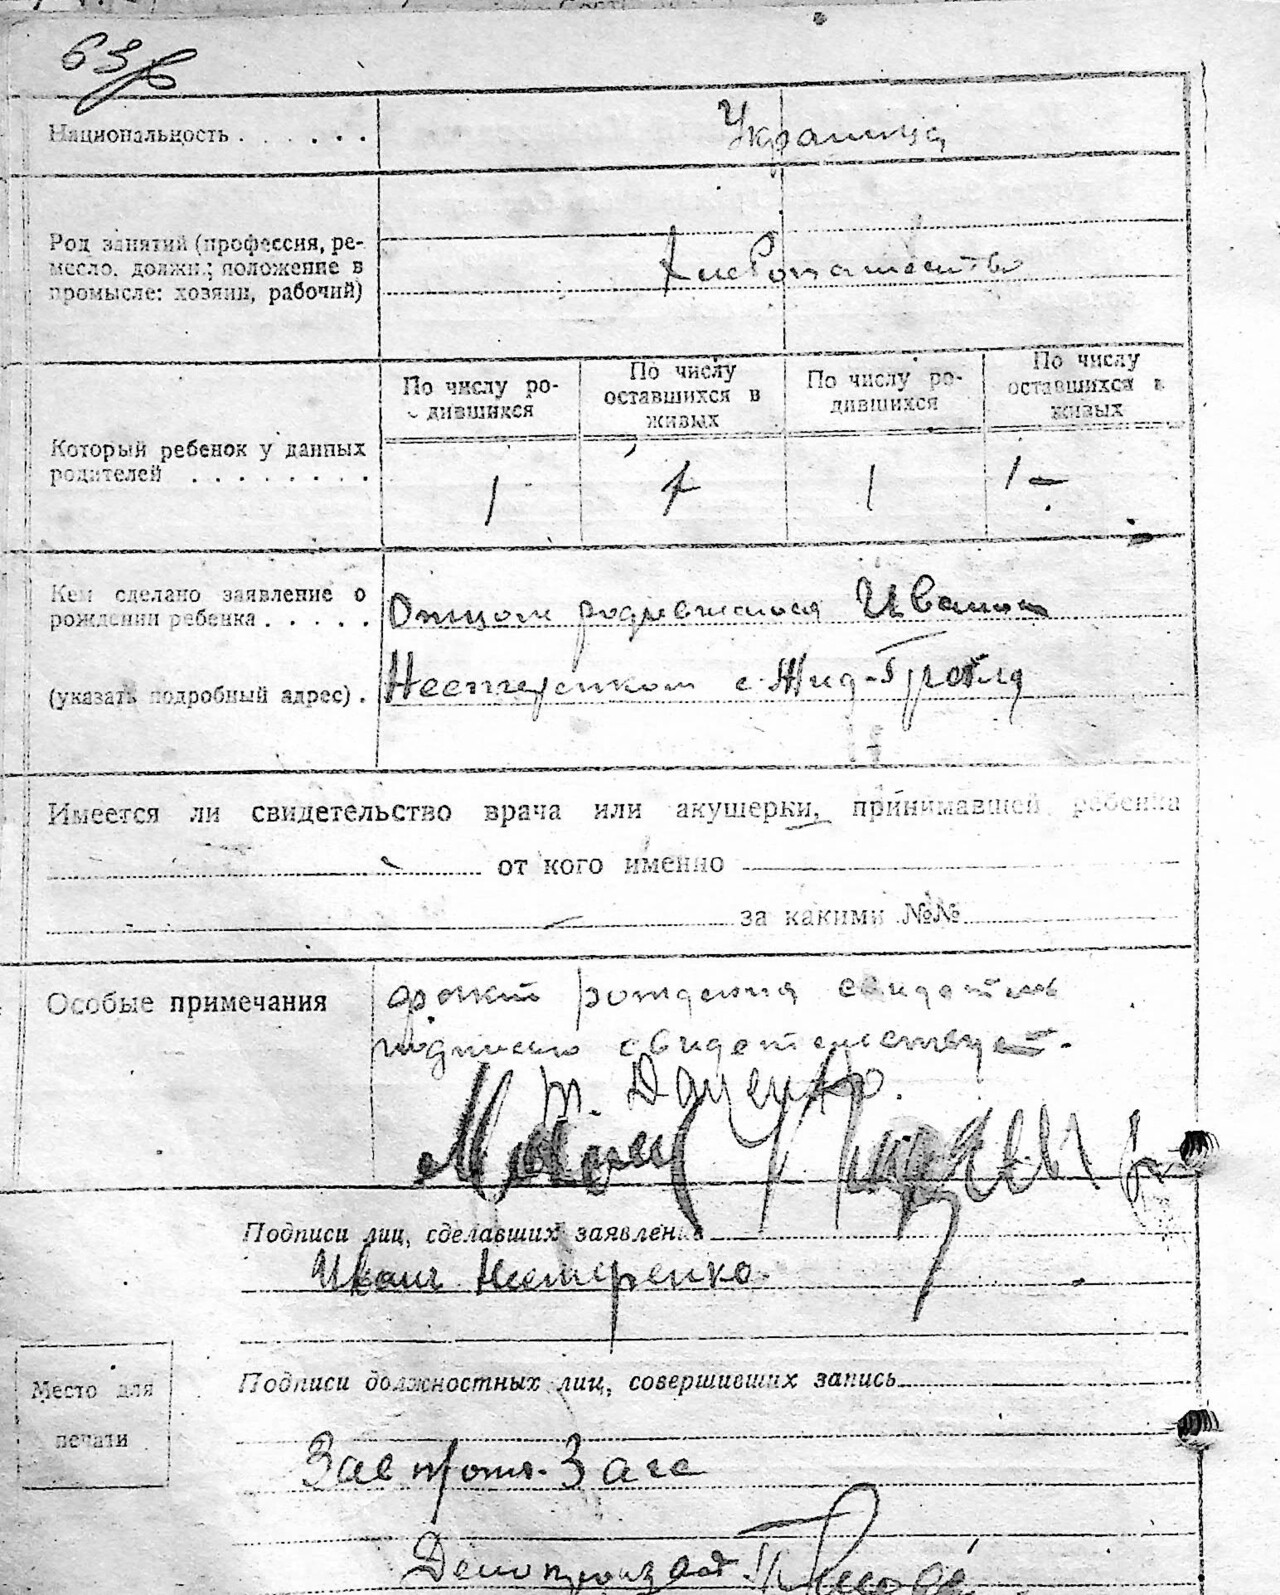 63
Национальность . . . . . .
Украинца
Род занятий (профессия, ре-
месло, должн.; положение в
промысле: хозяин, рабочий)
Хлебопашество
По числу ро-
дившихся
По числу
оставшихся в
живых
По числу ро-
дившихся
По числу
оставшихся в
живых
Который ребенок у данных
родителей . . . . . . . .
1 1 1 1 –
Кем сделано заявление о
рождении ребенка . . . . .
Отцом родившегося Иваном
(указать подробный адрес) .
Нестеренком с. Жид-Гребля
Имеется ли свидетельство врача или акушерки, принимавшей ребенка
от кого именно
за какими №№
Особые примечания
факт рождения свидетель
подписью свидетельствует.
Даценко.
Подписи лиц, сделавших заявление
Иван Нестеренко.
Место для
печати
Подписи должностных лиц, совершивших запись
Зав Загса
Делопроизвод